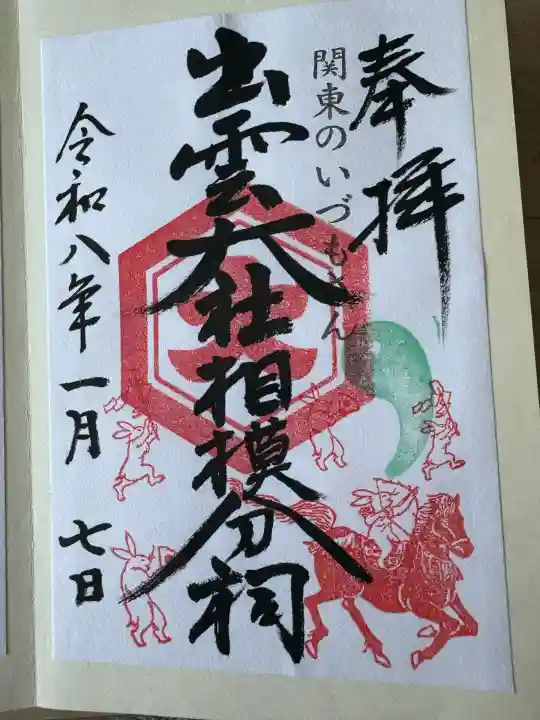 奉拝
関東のいづもさん
出雲大社相模分祠
令和八年一月七日